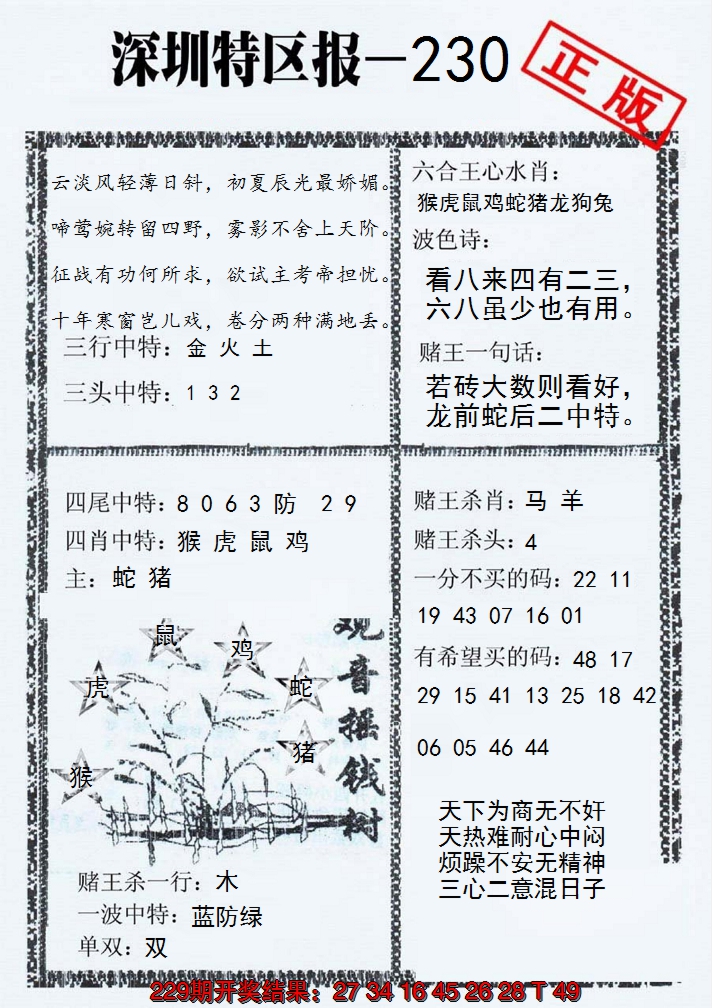 深圳特区报-230
正版
云淡风轻薄日斜，初夏辰光最娇媚。
啼莺婉转留四野，雾影不舍上天阶。
征战有功何所求，欲试主考帝担忧。
十年寒窗岂儿戏，卷分两种满地丢。
三行中特：金 火 土
三头中特：1 3 2
六合王心水肖：
猴虎鼠鸡蛇猪龙狗兔
波色诗：
看八来四有二三，
六八虽少也有用。
赌王一句话：
若砖大数则看好，
龙前蛇后二中特。
四尾中特：8 0 6 3 防 2 9
四肖中特：猴 虎 鼠 鸡
主：蛇 猪
鼠
鸡
虎
蛇
猪
猴
观音摇钱树
赌王杀一行：木
一波中特：蓝防绿
单双：双
赌王杀肖：马 羊
赌王杀头：4
一分不买的码：22 11
19 43 07 16 01
有希望买的码：48 17
29 15 41 13 25 18 42
06 05 46 44
天下为商无不奸
天热难耐心中闷
烦躁不安无精神
三心二意混日子
229期开奖结果：27 34 16 45 26 28 T 49